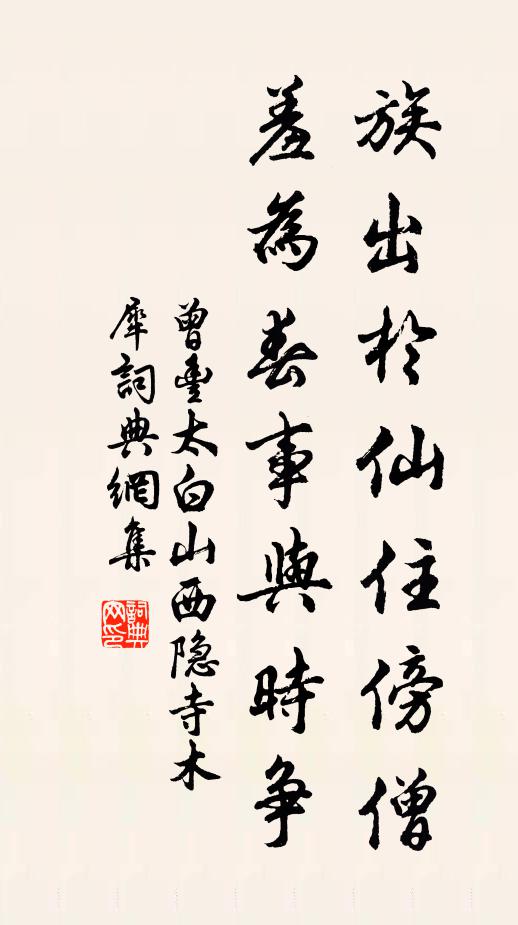 族出於仙住傍僧
羞為春事與時爭
曾豊太白山西隐寺木
犀詞典網集
詞典网印